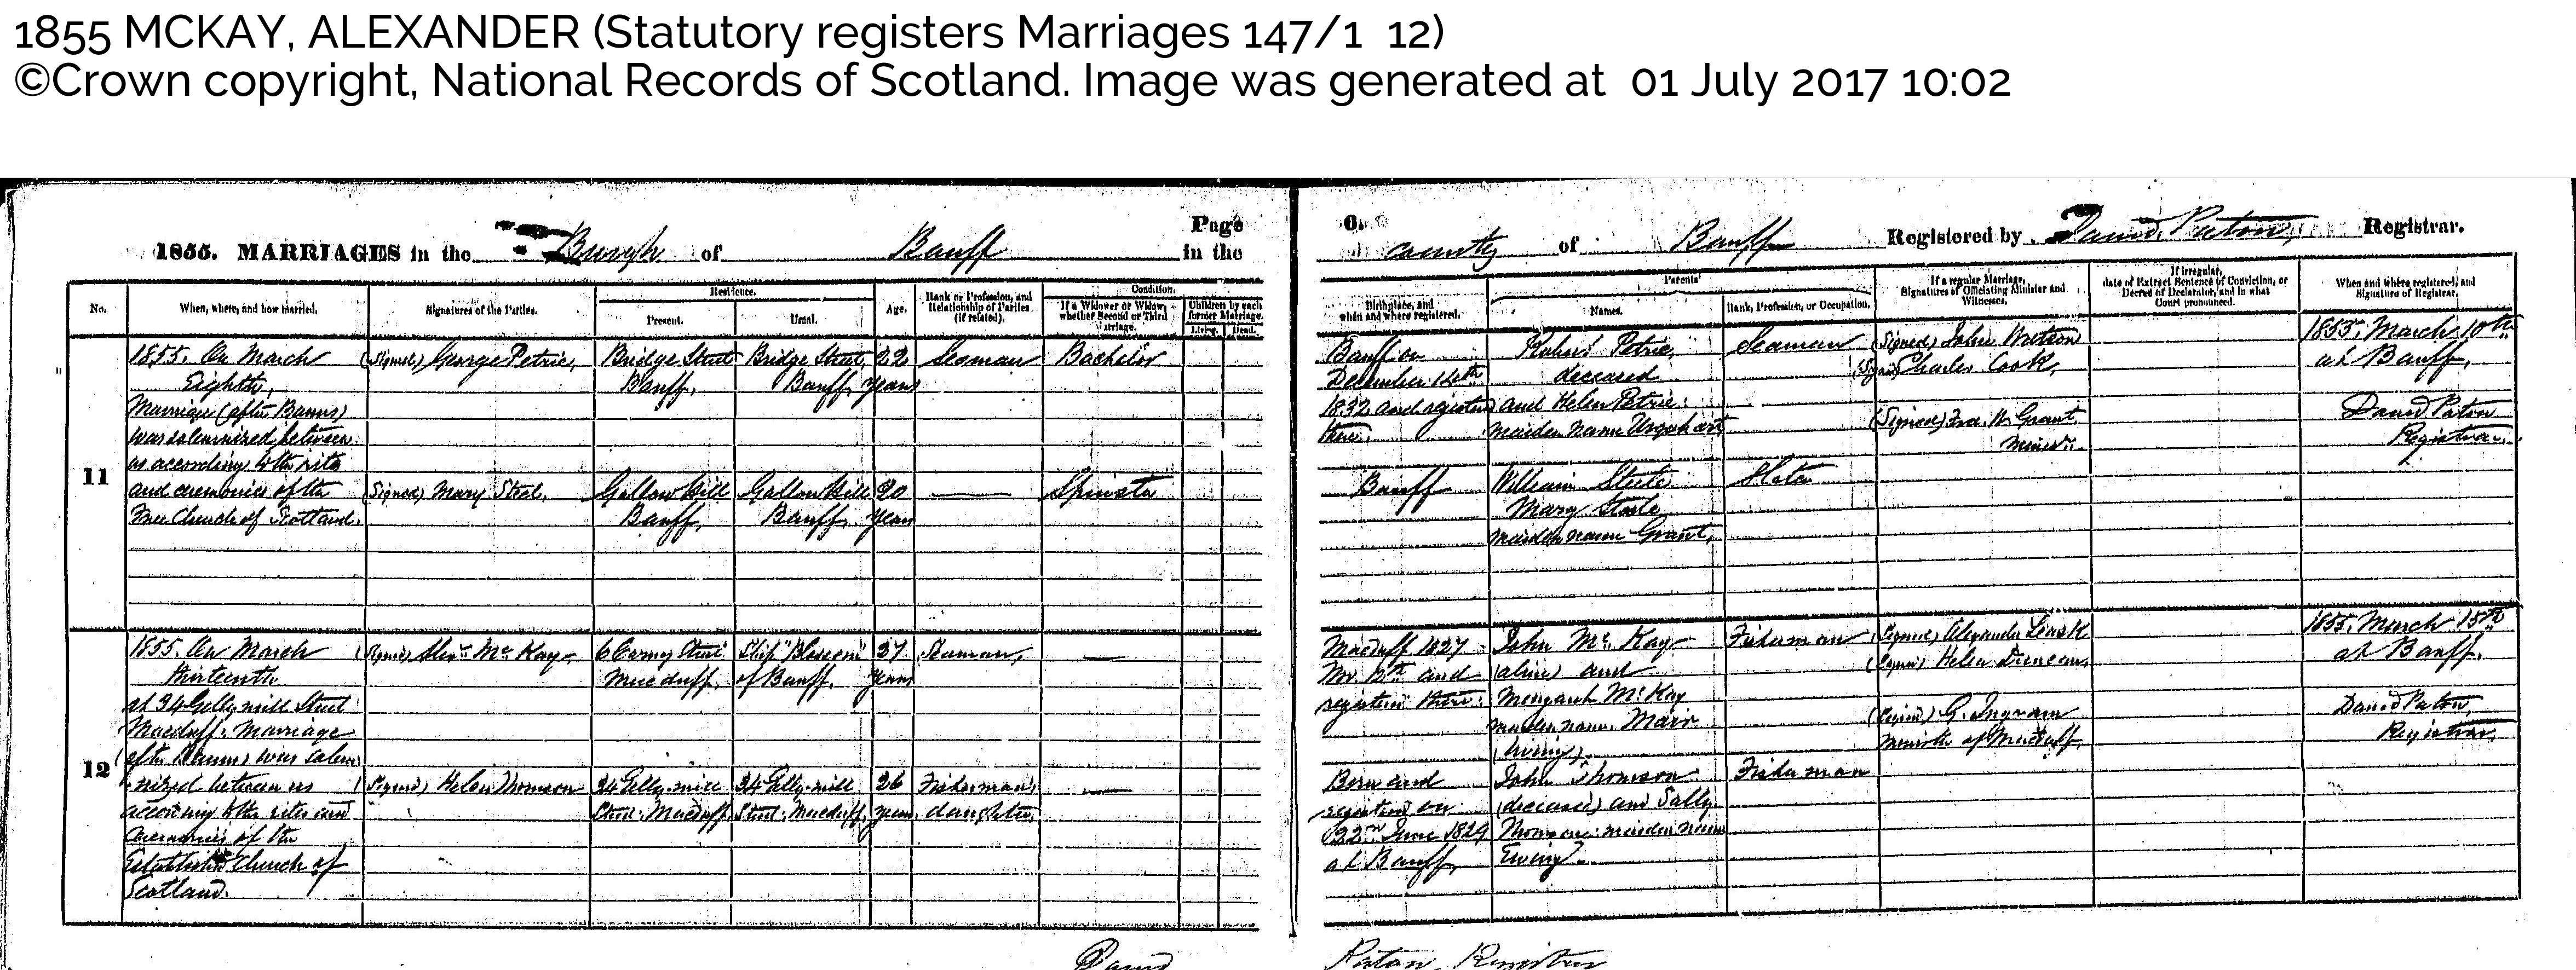 1855 MCKAY, ALEXANDER (Statutory registers Marriages 147/1 12)
©Crown copyright, National Records of Scotland. Image was generated at 01 July 2017 10:02
Page 6.
1855. MARRIAGES in the Burgh of Banff in the county of Banff Registered by David Paton, Registrar.
No.
When, where, and how married.
Signatures of the Parties.
Residence.
Present.
Usual.
Age.
Rank or Profession, and
Relationship of Parties
(if related).
Condition.
If a Widower or Widow,
whether Second or Third
Marriage.
Children by each
former Marriage.
Living. Dead.
Birthplace, and
when and where registered.
Parents'
Names.
Rank, Profession, or Occupation.
If a regular Marriage,
Signatures of Officiating Minister and
Witnesses.
If irregular,
date of Extract Sentence of Conviction, or
Decree of Declarator, and in what
Court pronounced.
When and where registered, and
Signature of Registrar.
11
1855. On March
Eighth,
Marriage (after Banns)
was solemnized between
us according to the rites
and ceremonies of the
Free Church of Scotland.
(Signed) George Petrie,
Bridge Street
Banff,
Bridge Street,
Banff,
22
years
Seaman
Bachelor
(Signed) Mary Steel,
Gallow Hill
Banff,
Gallow Hill
Banff,
20
years
Spinster
Banff on
December 14th
1832 and registered
there.
Petrie,
deceased
and Helen Petrie
maiden name Urquhart
Seaman
(Signed) John Watson
(Signed) Charles Cook,
(Signed) Fra. W. Grant
Minr.
1855. March 10th
at Banff,
David Paton
Registrar.
Banff
William Steele
Mary Steele
maiden name Grant,
Slater
12
1855. On March
thirteenth
at 34 Gelly mill Street
Macduff. Marriage
(after Banns) was solem
nized between us
according to the rites and
ceremonies of the
Established Church of
Scotland.
(Signed) Alexr. McKay
6 Street
Macduff,
Ship "Blossom"
of Banff.
27
years
Seaman,
(Signed) Helen Thomson
34 Gelly-mill
Street. Macduff
34 Gelly-mill
Street. Macduff,
26
years
Fisherman's
daughter,
Macduff 1827
Nov and
registered there.
John McKay
(alive) and
Margaret McKay
maiden name Mair
(living).
Fisherman
(Signed) Alexander Leask
(Signed) Helen Duncan,
(Signed) G. Ingram
Minister of Macduff,
1855. March 15th
at Banff.
David Paton,
Registrar,
Born and
registered on
22nd June 1829
at Banff,
John Thomson
(deceased) and Sally
Thomson: maiden name
Ewing.
Fisherman
David Paton, Registrar